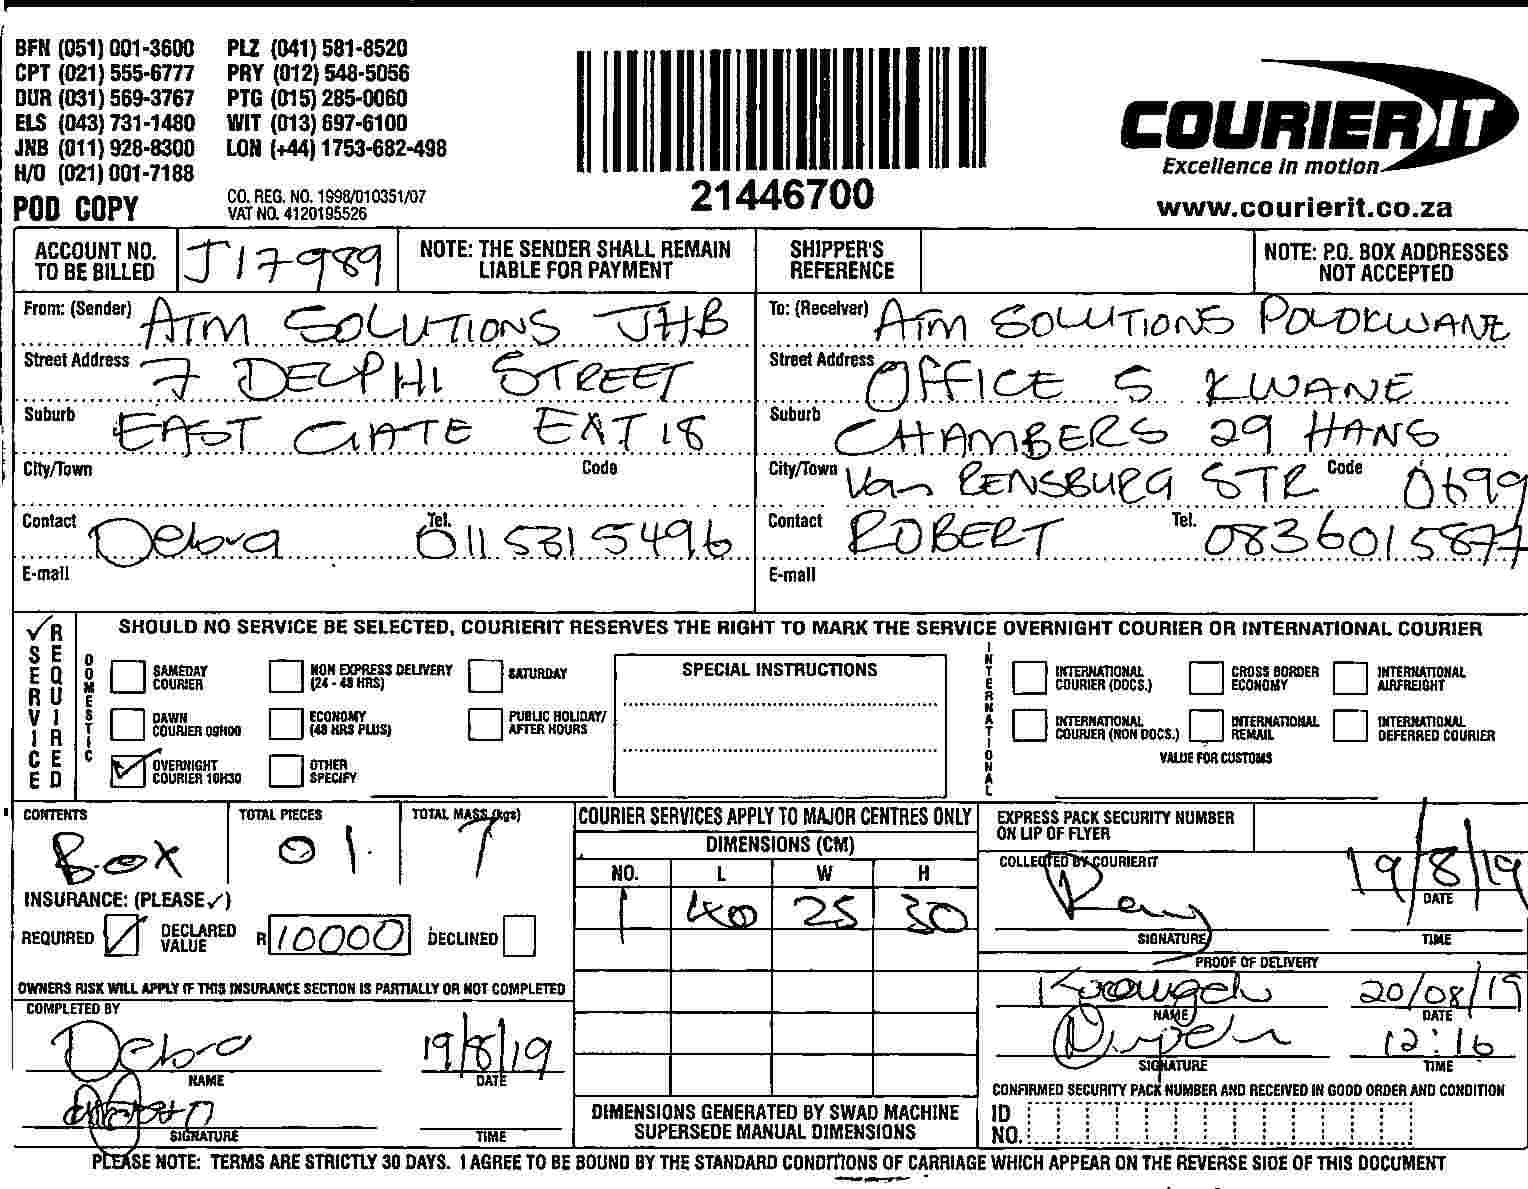 BFN (051) 001-3600 PLZ (041) 581-8520
CPT (021) 555-6777 PRY (012) 548-5056
DUR (031) 569-3767 PTG (015) 285-0060
ELS (043) 731-1480 WIT (013) 697-6100
JNB (011) 928-8300 LON (+44) 1753-682-498
H/O (021) 001-7188
POD COPY
CO. REG. NO. 1998/010351/07
VAT NO. 4120195526
21446700
COURIER IT
Excellence in motion
www.courierit.co.za
ACCOUNT NO. TO BE BILLED J17989
NOTE: THE SENDER SHALL REMAIN LIABLE FOR PAYMENT
SHIPPER'S REFERENCE
NOTE: P.O. BOX ADDRESSES NOT ACCEPTED
From: (Sender) ATM SOLUTIONS JHB
Street Address 7 DELPHI STREET
Suburb EAST GATE EXT 18
City/Town Code
Contact Debra Tel. 011 5315496
E-mail
To: (Receiver) ATM SOLUTIONS POLOKWANE
Street Address OFFICE 5 KWANE
Suburb CHAMBERS 29 HANS
City/Town Van RENSBURG STR Code 0699
Contact ROBERT Tel. 0836015877
E-mail
✓ SERVICE REQUIRED
SHOULD NO SERVICE BE SELECTED, COURIERIT RESERVES THE RIGHT TO MARK THE SERVICE OVERNIGHT COURIER OR INTERNATIONAL COURIER
DOMESTIC
SAMEDAY COURIER
NON EXPRESS DELIVERY (24 - 48 HRS)
SATURDAY
DAWN COURIER 09H00
ECONOMY (48 HRS PLUS)
PUBLIC HOLIDAY/ AFTER HOURS
OVERNIGHT COURIER 10H30
OTHER SPECIFY
SPECIAL INSTRUCTIONS
INTERNATIONAL
INTERNATIONAL COURIER (DOCS.)
CROSS BORDER ECONOMY
INTERNATIONAL AIRFREIGHT
INTERNATIONAL COURIER (NON DOCS.)
INTERNATIONAL REMAIL
INTERNATIONAL DEFERRED COURIER
VALUE FOR CUSTOMS
CONTENTS Box
TOTAL PIECES 01
TOTAL MASS (kgs) 7
INSURANCE: (PLEASE ✓)
REQUIRED ✓ DECLARED VALUE R 10000 DECLINED
OWNERS RISK WILL APPLY IF THIS INSURANCE SECTION IS PARTIALLY OR NOT COMPLETED
COMPLETED BY
Debra 19/8/19
NAME DATE
SIGNATURE TIME
COURIER SERVICES APPLY TO MAJOR CENTRES ONLY
DIMENSIONS (CM)
NO. L W H
1 40 25 30
DIMENSIONS GENERATED BY SWAD MACHINE
SUPERSEDE MANUAL DIMENSIONS
EXPRESS PACK SECURITY NUMBER ON LIP OF FLYER
COLLECTED BY COURIERIT
19/8/19
DATE
SIGNATURE TIME
PROOF OF DELIVERY
20/08/19
NAME DATE
12:16
SIGNATURE TIME
CONFIRMED SECURITY PACK NUMBER AND RECEIVED IN GOOD ORDER AND CONDITION
ID NO.
PLEASE NOTE: TERMS ARE STRICTLY 30 DAYS. I AGREE TO BE BOUND BY THE STANDARD CONDITIONS OF CARRIAGE WHICH APPEAR ON THE REVERSE SIDE OF THIS DOCUMENT